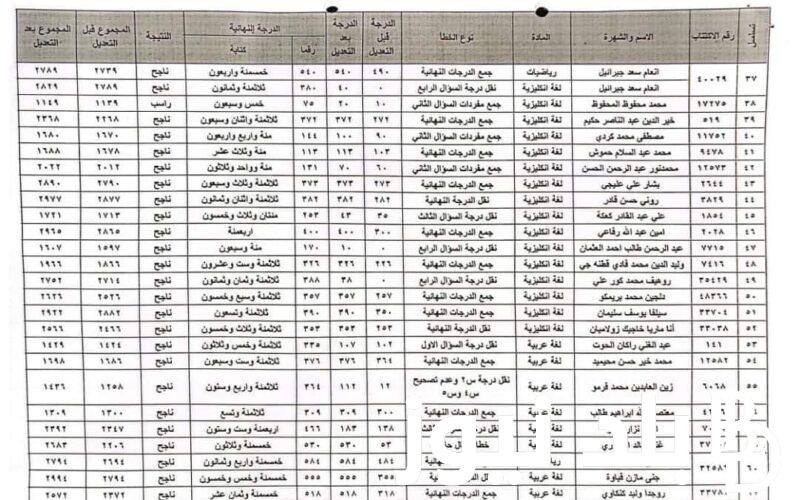 تسلسل رقم الاكتتاب الاسم والشهرة المادة نوع الخطأ الدرجة قبل التعديل الدرجة بعد التعديل الدرجة النهائية رقما كتابة النتيجة المجموع قبل التعديل المجموع بعد التعديل
٣٧ ٤٠٠٢٩ انعام سعد جبرائيل رياضيات جمع الدرجات النهائية ٤٩٠ ٥٤٠ ٥٤٠ خمسمئة واربعون ناجح ٢٧٣٩ ٢٧٨٩
انعام سعد جبرائيل لغة انكليزية نقل درجة السؤال الرابع ٠ ٤٠ ٣٨٠ ثلاثمئة وثمانون ناجح ٢٧٨٩ ٢٨٢٩
٣٨ ١٧٢٧٥ محمد محفوظ المحفوظ لغة انكليزية جمع مفردات السؤال الثاني ١٠ ٢٠ ٧٥ خمس وسبعون راسب ١١٣٩ ١١٤٩
٣٩ ٥١٩ خير الدين عبد الناصر حكيم لغة انكليزية جمع الدرجات النهائية ٢٧٢ ٣٧٢ ٣٧٢ ثلاثمئة واثنان وسبعون ناجح ٢٢٦٨ ٢٣٦٨
٤٠ ١١٧٥٢ مصطفى محمد كردي لغة انكليزية جمع مفردات السؤال الثاني ٩٠ ١٠٠ ١٤٤ مئة واربع واربعون ناجح ١٦٧٠ ١٦٨٠
٤١ ٩٤٧٨ محمد عبد السلام حموش لغة انكليزية جمع الدرجات النهائية ١٠٣ ١١٣ ١١٣ مئة وثلاث عشر ناجح ١٦٧٨ ١٦٨٨
٤٢ ١٢٥٧٣ محمدنور عبد الرحمن الحسن لغة انكليزية جمع مفردات السؤال الثاني ٦٠ ٧٠ ١٣١ مئة وواحد وثلاثون ناجح ٢٠١٢ ٢٠٢٢
٤٣ ٢٦٤٤ بشار علي عليجي لغة انكليزية جمع الدرجات النهائية ٢٧٣ ٣٧٣ ٣٧٣ ثلاثمئة وثلاث وسبعون ناجح ٢٧٩٠ ٢٨٩٠
٤٤ ٣٨٢٩ روني حسن قادر لغة انكليزية نقل الدرجة النهائية ٢٨٢ ٣٨٢ ٣٨٢ ثلاثمئة واثنان وثمانون ناجح ٢٨٧٧ ٢٩٧٧
٤٥ ١٨٥٤ علي عبد القادر كعكة لغة انكليزية نقل درجة السؤال الثالث ٣٥ ٤٣ ٢٥٣ مئتان وثلاث وخمسون ناجح ١٧١٣ ١٧٢١
٤٦ ٢٠٢٨ امين عبد الله رفاعي لغة انكليزية جمع الدرجات النهائية ٣٠٠ ٤٠٠ ٤٠٠ اربعمئة ناجح ٢٨٦٥ ٢٩٦٥
٤٧ ٧٧١٥ عبد الرحمن طالب احمد العثمان لغة انكليزية نقل درجة السؤال الرابع ٠ ١٠ ١٧٠ مئة وسبعون ناجح ١٥٩٧ ١٦٠٧
٤٨ ٧٤١٦ وليد الدين محمد فادي قطنه جي لغة انكليزية جمع الدرجات النهائية ٢٢٦ ٣٢٦ ٣٢٦ ثلاثمئة وست وعشرون ناجح ١٨٦٦ ١٩٦٦
٤٩ ٣٥٤٢٩ روهيف محمد كور علي لغة انكليزية نقل درجة السؤال الرابع ٠ ٣٨ ٣٨٨ ثلاثمئة وثمان وثمانون ناجح ٢٧١٤ ٢٧٥٢
٥٠ ٤٨٣٦٦ دلجين محمد بريمكو لغة انكليزية جمع الدرجات النهائية ٢٥٧ ٣٥٧ ٣٥٧ ثلاثمئة وسبع وخمسون ناجح ٢٥٢٦ ٢٦٢٦
٥١ ٣٣٧٠٤ سيلفا يوسف سليمان لغة انكليزية جمع الدرجات النهائية ٣٥٠ ٣٩٠ ٣٩٠ ثلاثمئة وتسعون ناجح ٢٨٨٢ ٢٩٢٢
٥٢ ٣٣٠٣٨ أنا ماريا خاجيك زولاميان لغة انكليزية نقل الدرجة النهائية ٢٥٣ ٣٥٣ ٣٥٣ ثلاثمئة وثلاث وخمسون ناجح ٢٤٦٦ ٢٥٦٦
٥٣ ١٤١ عبد الغني راكان الحوت لغة عربية نقل درجة السؤال الاول ١٠٢ ١٠٧ ٣٣٥ ثلاثمئة وخمس وثلاثون ناجح ١٤٢٤ ١٤٢٩
٥٤ ١٢٥٨٢ محمد خير حسن محيميد لغة عربية جمع الدرجات النهائية ٣٦٤ ٣٧٦ ٣٧٦ ثلاثمئة وست وسبعون ناجح ١٦٨٦ ١٦٩٨
٥٥ ٦٠٦٨ زين العابدين محمد قرمو لغة عربية نقل درجة س٢ وعدم تصحيح س٤ وس٥ ١٢ ١١٢ ٣٦٤ ثلاثمئة واربع وستون ناجح ١٢٥٨ ١٤٣٦
معتصم الله ابراهيم طالب لغة عربية جمع الدرجات النهائية ٣٠٠ ٣٠٩ ٣٠٩ ثلاثمئة وتسع ناجح ١٣٠٠ ١٣٠٩
لغة عربية الثالث ١٣٨ ١٨٣ ٤٦٦ اربعمئة وست وستون ناجح ٢٣٤٧ ٢٣٩٢
لغة عربية ٥٣ ٥٣٠ خمسمئة وثلاثون ناجح ٢٢٠٦ ٢٦٨٣
٦٠ النهائية ٤٨٤ ٥٨٤ ٥٨٤ خمسمئة واربع وثمانون ناجح ٢٦٩٤ ٢٧٩٤
جنى مازن قباوة لغة عربية ٣٥٥ ٥٥٥ ٥٥٥ خمسمئة وخمس وخمسون ناجح ٢٧٩٤ ٢٩٩٤
٣٣٧٨٠ روجدا وليد كنكاوي لغة عربية جمع الدرجات النهائية ٣١٨ ٥١٨ ٥١٨ خمسمئة وثمان عشر ناجح ٢٣٧٢ ٢٥٧٢